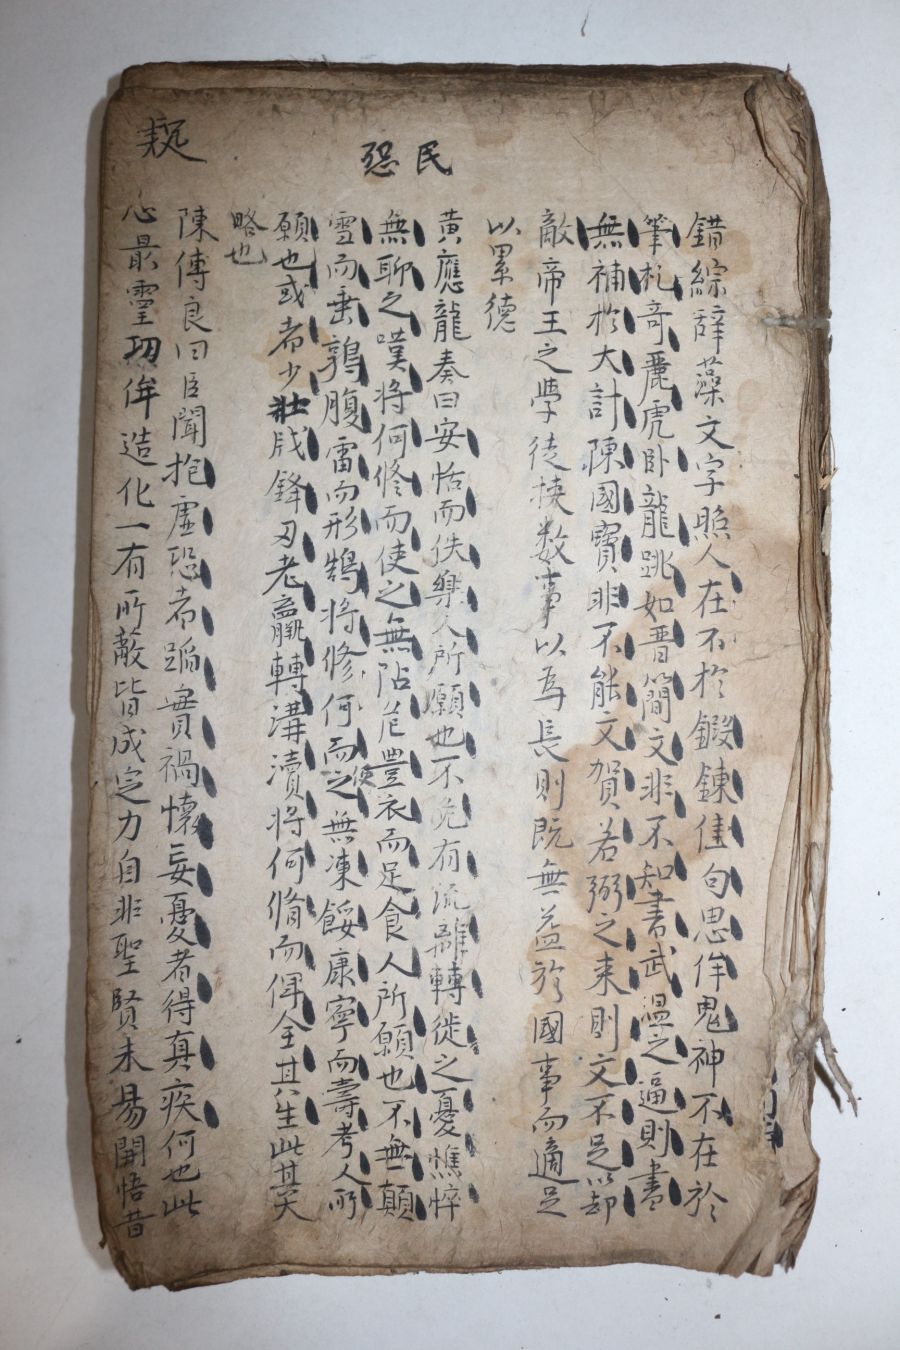 民怨
錯綜辞藻文字照人在不於鍛鍊佳句思侔鬼神不在於
筆札奇麗虎卧龍跳如晋簡文非不知書武溫之逼則書
無補於大計陳國寶非不能文賀若弼之来則文不足以却
敵帝王之學徒挟数事以為長則既無益於國事而適足
以累德
黃應龍奏曰安恬而佚樂人所願也不免有流離轉徙之憂憔悴
無聊之嘆將何修而使之無阽危豊衣而足食人所願也不無顛
雪而垂鶉腹雷而形鵠將修何而使之無凍餒康寧而壽考人所
願也或者少壮成鋒刃老羸轉溝瀆將何脩而俾全其生此其大
略也
陳傅良曰臣聞抱虛恐者蹈實禍懷妄憂者得真疾何也此
心最霊功侔造化一有所敵皆成定力自非聖賢未易開悟昔